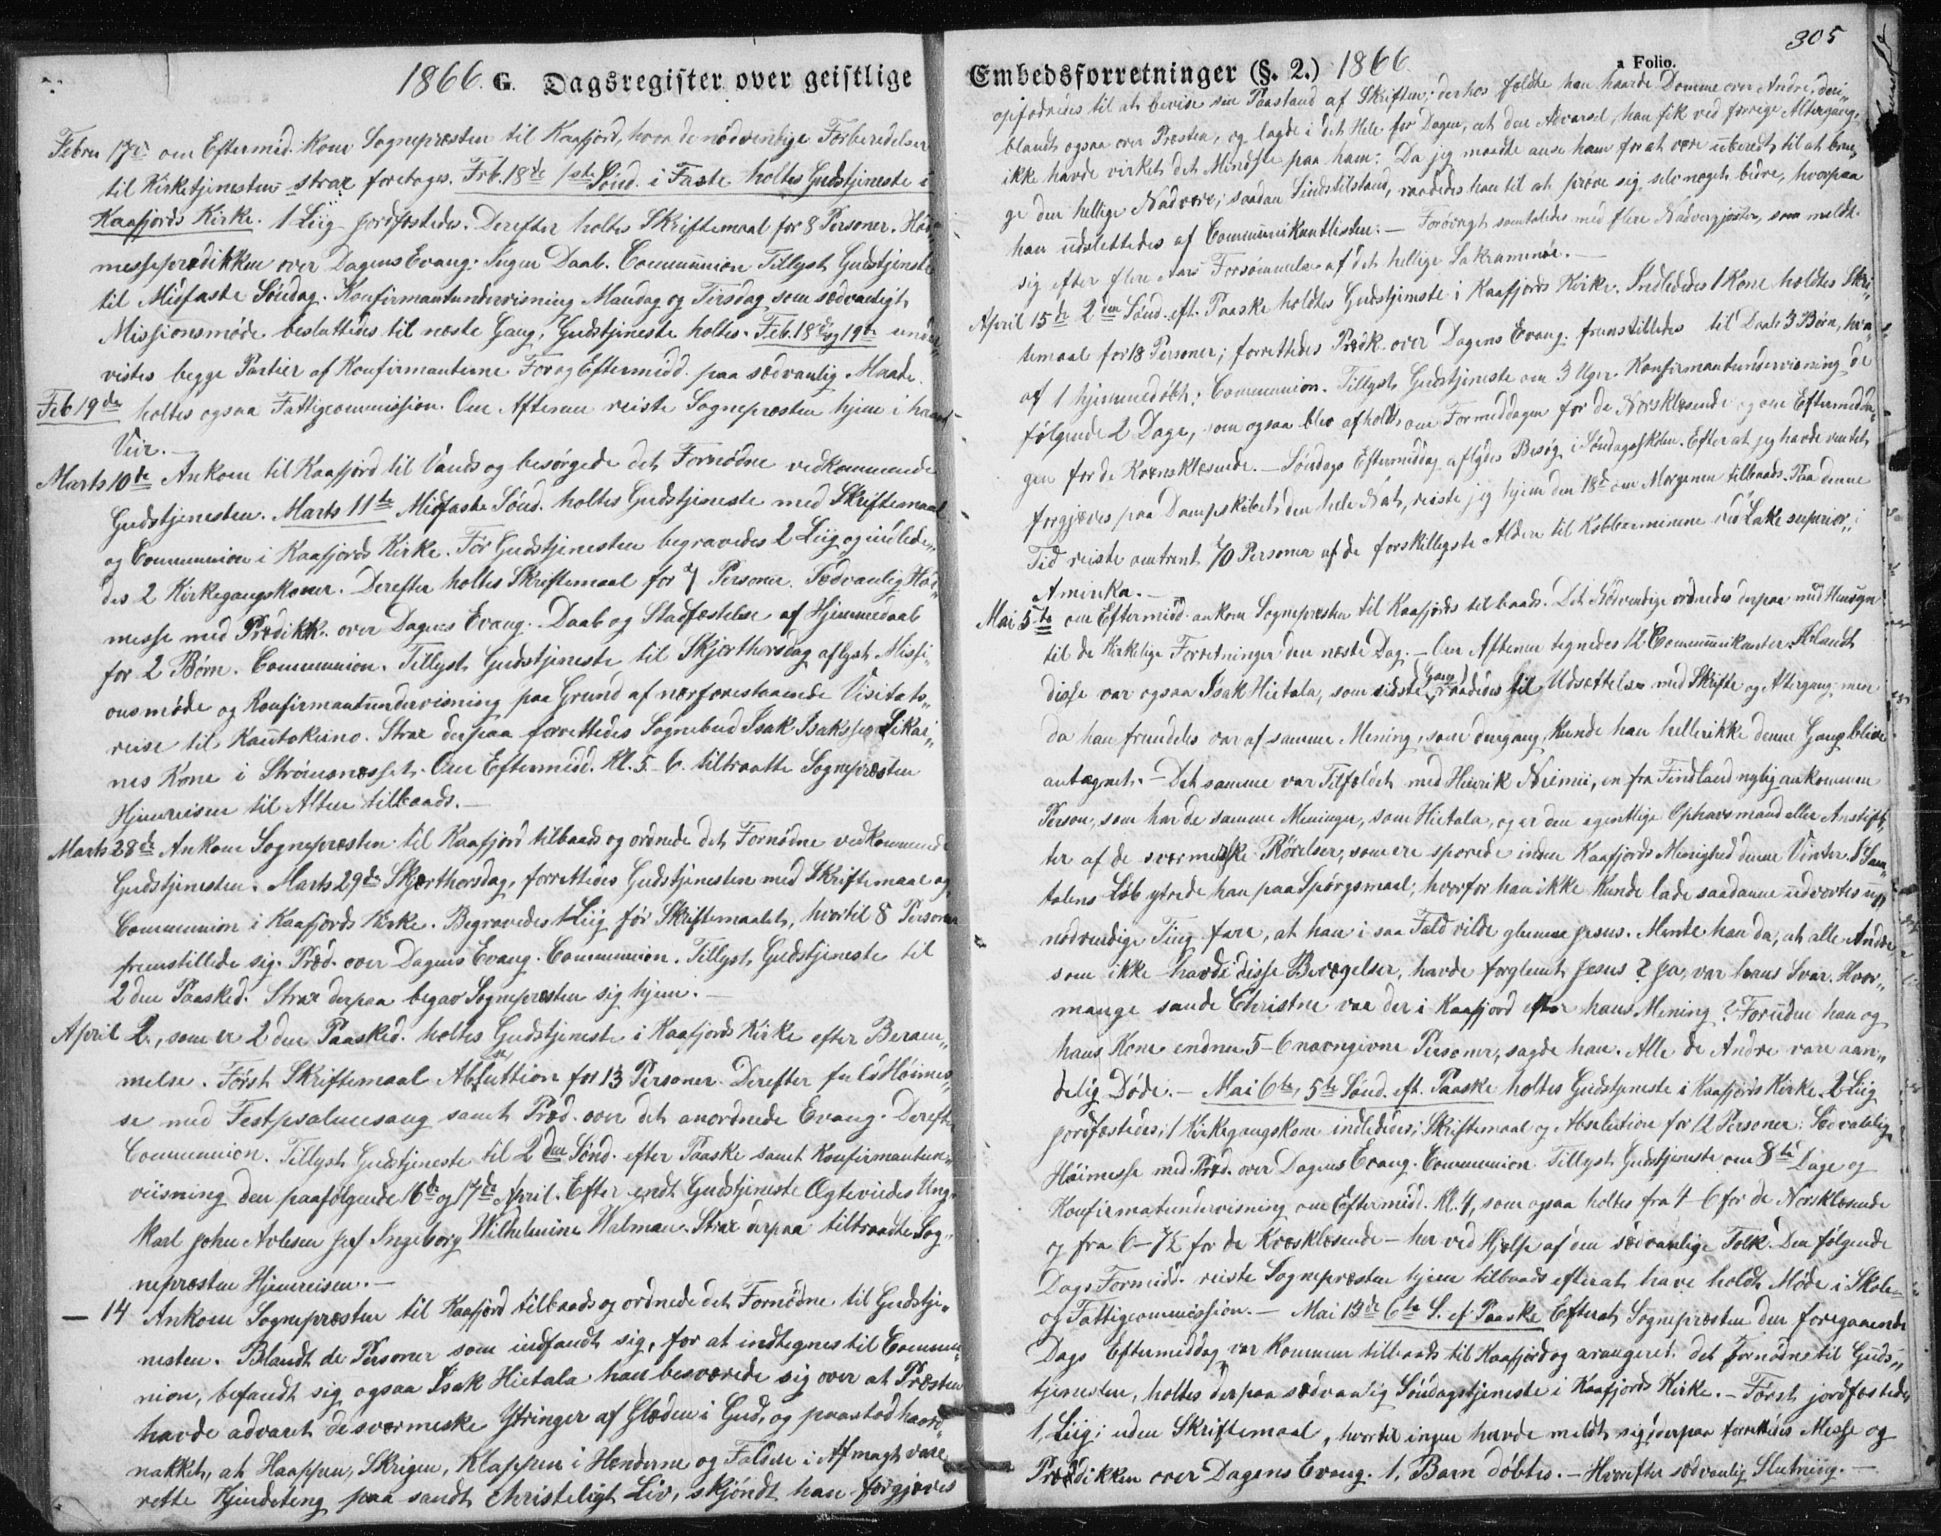 1866. G. Dagsregister over geistlige
Febru 17de om Eftermid. kom Sognepræsten til Kaafjord, hvor de nødvendige Forberedelser
til Kirketjenesten strax foretoges. Feb. 18de 1ste Sønd. i Faste holtes Gudstjeneste i
Kaafjords Kirke. 1 Liig jordfæstedes. Derefter holtes Skriftemaal for 8 Personer. Høi„
messeprædikken over Dagens Evang. Ingen Daab. Communion Tillyst Gudstjeneste
til Midfaste Søndag. Konfirmantundervisning Mandag og Tirsdag som sædvanligt,
Missionsmøde besluttedes til næste Gang, Gudstjeneste holtes. Feb. 18de og 19de under„
vistes begge Partier af Konfirmanterne For og Eftermidd. paa sædvanlig Maade.
Feb 19de holtes ogsaa Fattigcommission. Om Aftenen reiste Sognepræsten hjem i haardt
Veir.
Marts 10de Ankom til Kaafjord til Vands og besørgede det Fornødne vedkommende
Gudstjenesten. Marts 11te Midfaste Sønd. holtes Gudstjeneste med Skriftemaal
og Communion i Kaafjords Kirke. Før Gudstjenesten begravedes 2 Liig og indlede„
des 2 Kirkegangskoner. Derefter holtes Skriftemaal for 7 Personer. Sædvanlig Høi„
messe med Prædikk. over Dagens Evang. Daab og Stadfæstelse af Hjemmedaab
for 2 Børn. Communion. Tillyst Gudstjeneste til Skjærthorsdag aflyst Missi„
onsmøde og Konfirmantundervisning paa Grund af nærforestaaende Visitats„
reise til Kautokeino. Strax derpaa forrettedes Sognebud Isak Isaksen Sikai„
nes Kone i Strømsnæsset. Om Eftermidd. Kl. 5-6. tiltraatte Sognepræsten
Hjemreisen til Alten tilbaads.—
Marts 28de Ankom Sognepræsten til Kaafjord tilbaads og ordnede det Fornødne vedkommende
Gudstjenesten. Marts 29de Skjærthorsdag, forrettedes Gudstjenesten med Skriftemaal og
Communion i Kaafjords Kirke. Begravedes 1 Liig før Skriftemaalet, hvortil 8 Personer
fremstillede sig. Præd. over Dagens Evang. Communion. Tillyst Gudstjeneste til
2den Paasked. Strax derpaa begav Sognepræsten sig hjem.—
April 2., som er 2den Paasked. holtes Gudstjeneste i Kaafjords Kirke efter Beram„
melse. Først Skriftemaal Absolution for 13 Personer. Derefter fuld Høimes„
se med Festpsalmesang samt Præd. over det anordnede Evang. Derefter
Communion. Tillyst Gudstjeneste til 2den Sønd. efter Paaske samt Konfirmantun„
viisning den paafølgende 16de og 17de April. Efter endt Gudstjeneste Ægteviedes Ung„
karl John Avlesen Ingeborg Wilhelmine Walman. Strax derpaa tiltraadte Sog„
nepræsten Hjemreisen.—
— 14 Ankom Sognepræsten til Kaafjord tilbaads og ordnede det Fornødne til Gudstje„
nesten. Blandt de Personer som indfandt sig, for at indtegnes til Commu„
nion, befandt sig ogsaa Isak Hietala han besværede sig over at Præsten
havde advaret de sværmeske Yttringer af Glæden i Gud, og paastod haard„
nakket, at Haappen, Skrigen, Klappen i Hænderne og Falden i Afmagt vare
rette Kjendetegn paa sandt christeligt Liv, skjøndt han forgjæves
Embedsforretninger (§. 2.) 1866.
a Folio.
305
opfordredes til at bevise sin Paastand af Skriften; derhos fældte han haarde Domme over Andre, deri„
blandt ogsaa over Præsten, og lagde i det Hele for Dagen, at den Advarsel, han fik ved forrige Altergang,
ikke havde virket det Mindste paa ham. Da jeg maatte anse ham for at være uberedt til at bru„
ge den hellige Nadvere, i saadan Sindstilstand, raadedes han til at prøve sig selv noget bedre, hvorpaa
han udslettedes af Communikantlisten.— Forøvrigt samtaledes med flere Nadvergjester, som meldte
sig efter flere Aars Forsømmelse af det hellige Sakramente.—
April 15de 2den Sønd. eft. Paaske holdtes Gudstjeneste i Kaafjords Kirke. Indlededes 1 Kone holdtes Skri„
temaal for 18 Personer; forrettedes Prædk. over Dagens Evang. fremstilledes til Daab 3 Børn, hvor„
af 1 hjemmedøbt; Communion. Tillyst Gudstjeneste om 3 Uger. Konfirmantundervisning de
følgende 2 Dage, som ogsaa blev afholdt om Formiddagen for de Norsklæsende og om Eftermidda„
gen for de Kvænsklæsende.— Søndags Eftermiddag aflagdes Besøg i Søndagsskolen. Efter at jeg havde ventet
forgjæves paa Dampskibet den hele Nat, reiste jeg hjem den 18de om Morgenen tilbaads. Paa denne
Tid reiste omtrent 70 Personer af de forskelligste Aldere til Kobberminerne ved Lake superior i
Amerika.—
Mai 5te om Eftermidd. ankom Sognepræsten til Kaafjords tilbaads. Det Nødvendige ordnedes derpaa med Hensyn
til de Kirkelige Forretninger den næste Dag.— Om Aftenen tegnedes 12 Communikanter. Iblandt
disse var ogsaa Isak Hietala, som sidste Gang raadedes til Udsættelse med Skrifte og Altergang; men
da han fremdeles var af samme Mening, som dengang, kunde han heller ikke denne Gang blive
antegnet.— Det samme var Tilfældet med Hinrik Niemi, en fra Findland nylig ankommen
Person, som har de samme Meninger, som Hietala, og er den egentlige Ophavsmand eller Anstift„
ter af de sværmeriske Rørelser, som ere sporede inden Kaafjords Menighed denne Vinter. I Sam„
talens Løb ytrede han paa Spørgsmaal, hvorfor han ikke kunde lade saadanne udvortes un„
nødvendige Ting fare, at han i saa Fald vilde glemme Jesus. Mente han da, at alle Andre
som ikke havde disse Bevægelser, havde forglemt Jesus? Ja, var hans Svar. Hvor„
mange sande Christne var der i Kaafjord efter hans Mening? Foruden han og
hans Kone endnu 5-6 navngivne Personer, sagde han. Alle de Andre vare aan„
delig Døde.— Mai 6te, 5te Sønd. eft. Paaske holtes Gudstjeneste i Kaafjords Kirke. 2 Liig
jordfæstedes; 1 Kirkegangskone indledtes; Skriftemaal og Absolution for 12 Personer. Sædvanlig
Høimesse med Præd. over Dagens Evang. Communion Tillyst Gudstjeneste om 8te Dage og
Konfirmatundervisning om Eftermidd. Kl. 4, som ogsaa holtes fra 4-6 for de Norsklæsende
og fra 6-7½ for de Kvæsklæsende— her ved Hjelp af den sædvanlige Tolk. Den følgende
Dags Formidd. reiste Sognepræsten hjem tilbaads efter at have holdt Møde i Skole-
og Fattigcommission.— Mai 13de 6te S. ef. Paaske Efterat Sognepræsten den foregaaende
Dags Eftermiddag var kommen tilbaads til Kaafjord og arrangeret det Fornødne til Guds„
tjenesten, holtes derpaa sædvanlig Søndagstjeneste i Kaafjords Kirke.— Først jordfæstedes
1, Liig; uden Skriftemaal, hvortil ingen havde meldt sig, derpaa forrettedes Messe og
Prædikken over Dagens Evang. 1, Barn døbtes.— Hvorefter sædvanlig Slutning.—